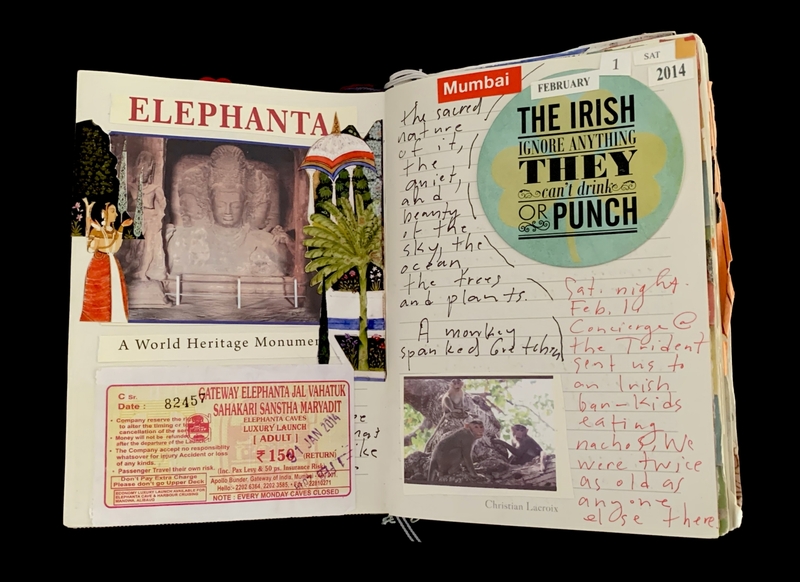 ELEPHANTA
A World Heritage Monumen
C Sr.
Date : 82457
GATEWAY ELEPHANTA JAL VAHATUK
SAHAKARI SANSTHA MARYADIT
ELEPHANTA CAVES
LUXURY LAUNCH
[ ADULT ]
₹ 150 (RETURN)
(Inc. Pax Levy & 50 ps. Insurance Risk)
Apollo Bunder, Gateway of India,
NOTE : EVERY MONDAY CAVES CLOSED
JAN 2014
Company reserve the
to alter the timing or
cancellation of the
Money will not be
after the departure of the
The Company accept no responsibility
whatsoever for injury Accident or loss
of any kinds.
Passenger Travel their own risk.
Don't Pay Extra Charge
Please don't go Upper Deck
Mumbai
FEBRUARY
1
SAT
2014
the sacred
nature
of it,
the
quiet,
and
beauty
of the
sky, the
ocean
the trees
and plants.
A monkey
spanked Gretchen
THE IRISH
IGNORE ANYTHING
THEY
can't drink
OR PUNCH
Sat. night.
Feb. 1
Concierge @
the Trident
sent us to
an Irish
bar-kids
eating
nachos, We
were twice
as old as
anyone
else there
Christian Lacroix